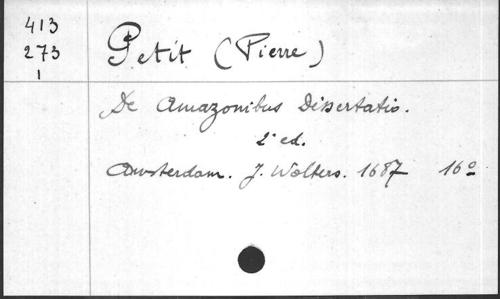 413
273
1
Petit (Pierre)
De Amazonibus Dissertatio.
2ª ed.
Amsterdam. J. Wolters. 1687 16º